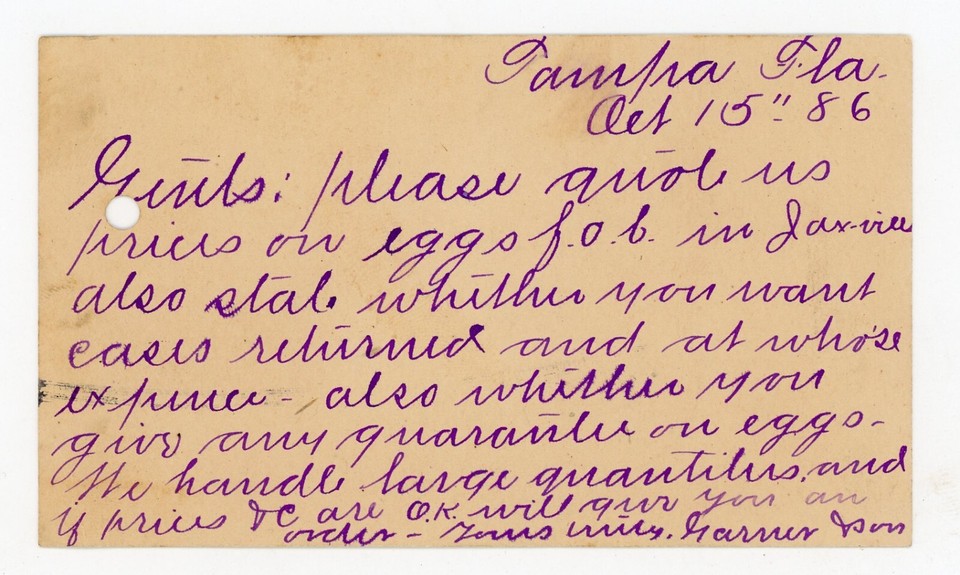 Tampa Fla.
Oct 15" 86
Gents: please quote us
prices on eggs f.o.b. in Jax-ville
also state whether you want
cases returned and at whose
expence - also whether you
give any guarantee on eggs -
We handle large quantities, and
if prices &c are O.K. will give you an
order - Yours truly. Garner & Son